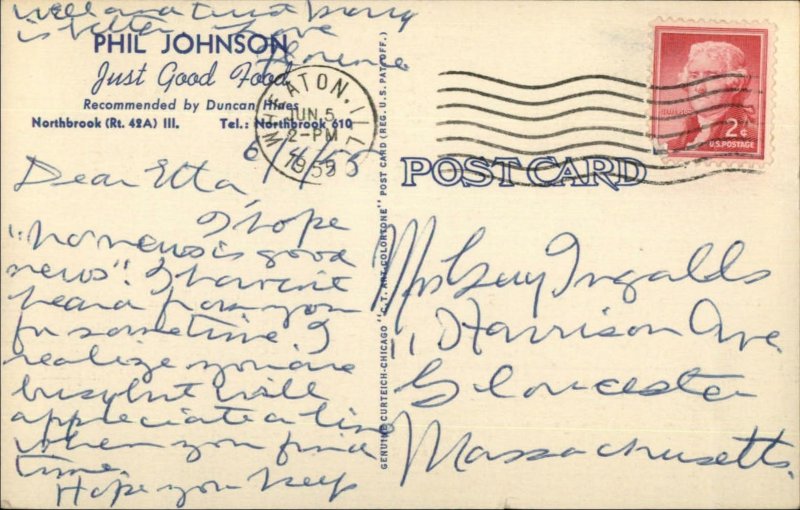 well and trust Harry
is better. Love
Florence
PHIL JOHNSON
Just Good Food
Recommended by Duncan Hines
Northbrook (Rt. 42A) Ill. Tel.: Northbrook 610
WHEATON, ILL.
JUN 5
2-PM
1955
6/4/55
2¢
U.S. POSTAGE
POST CARD
GENUINE CURTEICH-CHICAGO "C.T. ART-COLORTONE" POST CARD (REG. U.S. PAT. OFF.)
Dear Etta,
I hope
"no news is good
news". I haven't
heard from you
for sometime. I
realize you are
busy but will
appreciate a line
when you find
time.
Hope you keep
Mrs Guy Ingalds
11 Harrison Ave.
Gloucester
Massachusetts.